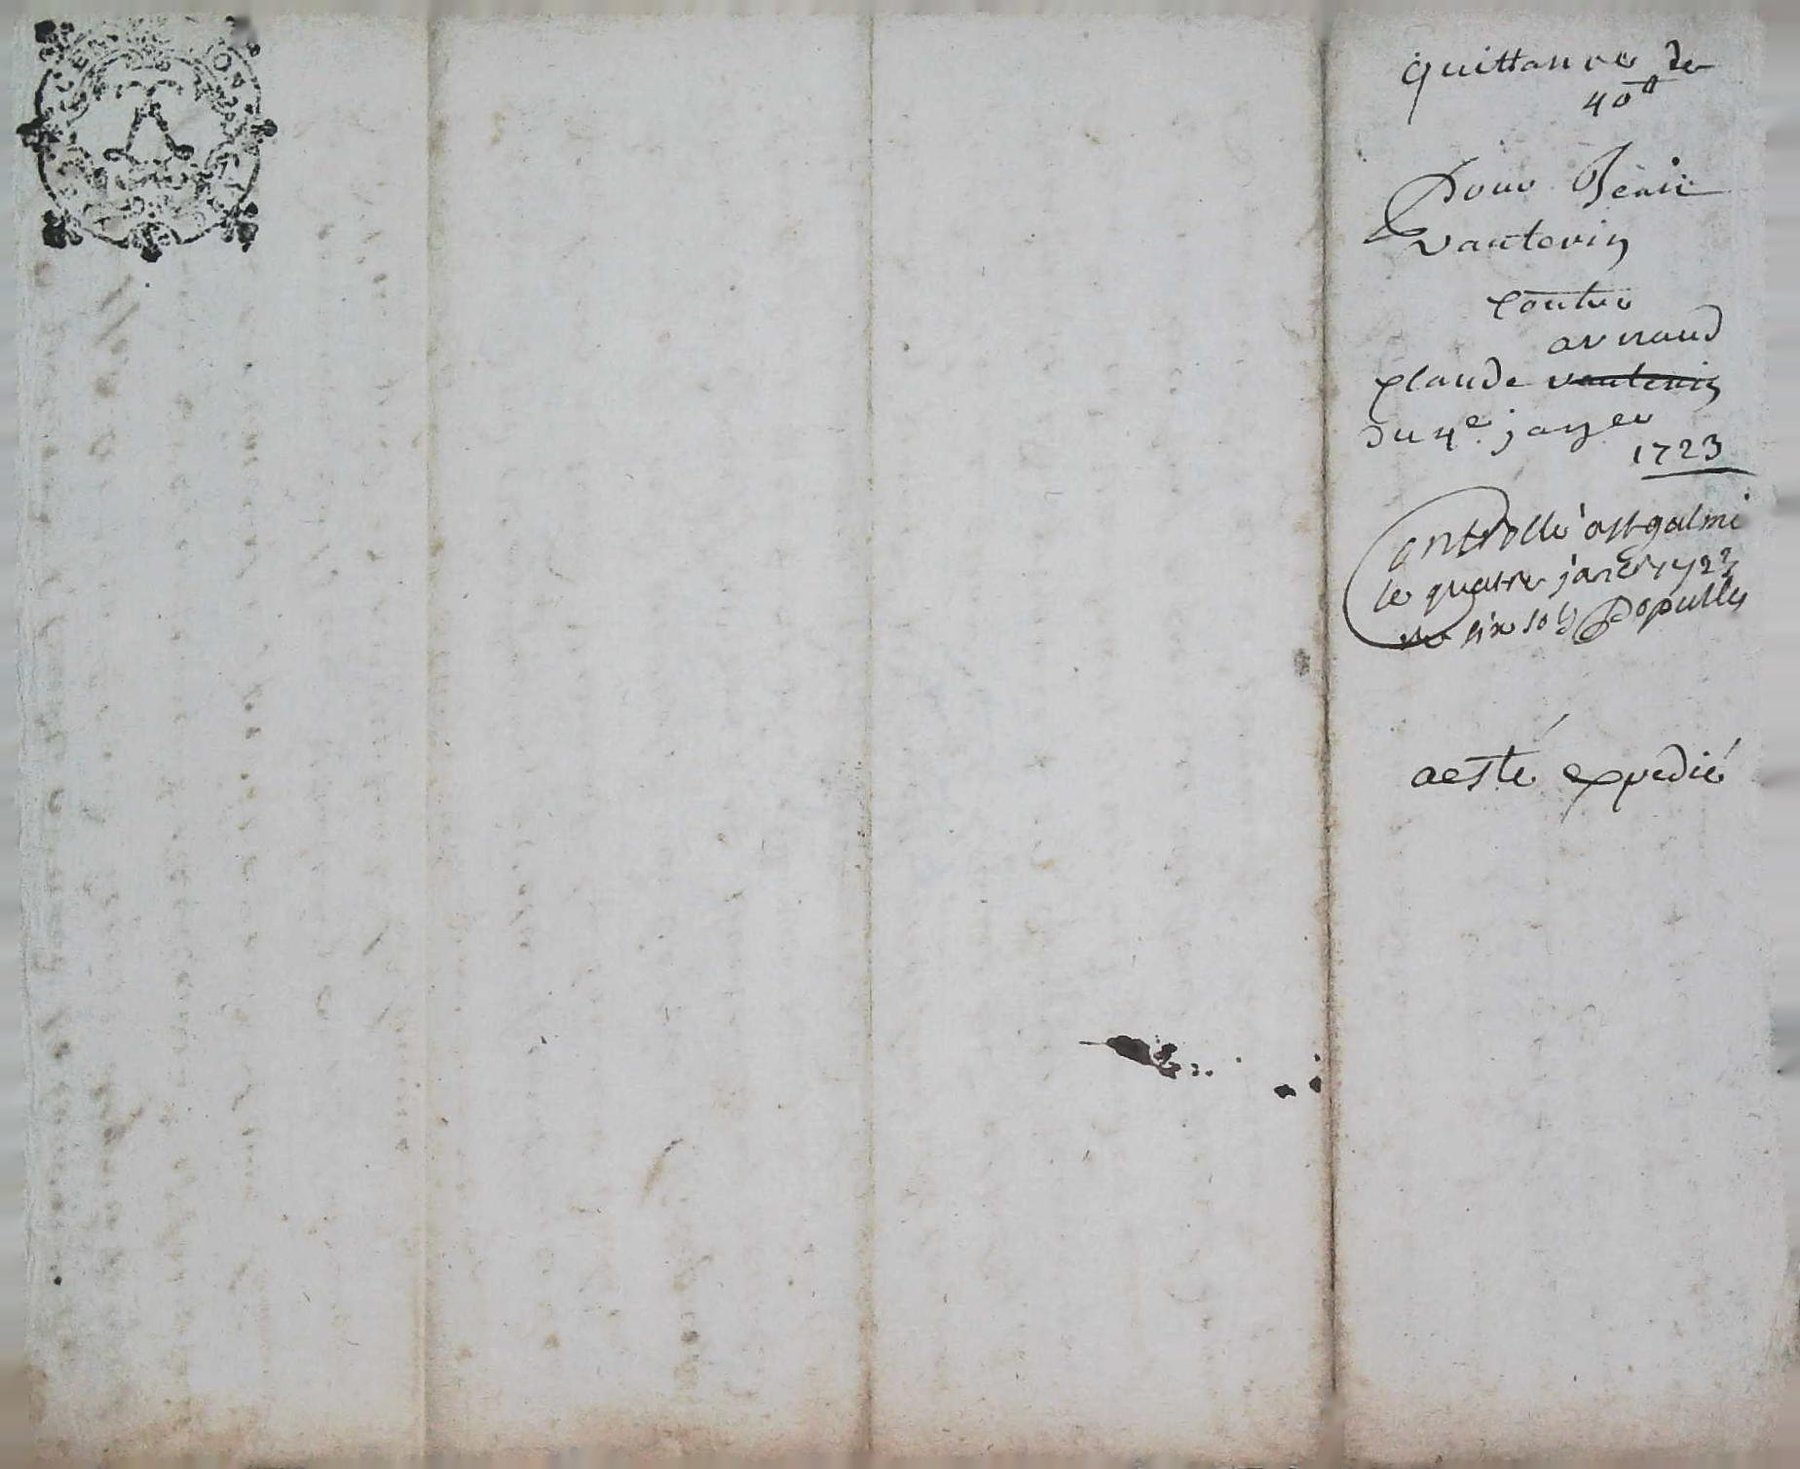 quittance de
40#
Pour Jean
vauterin
contre
arnaud
Claude vauterin
du 4e janer
1723
Controllé a st galmi
le quatre janer 1723
six sols
a esté expedié